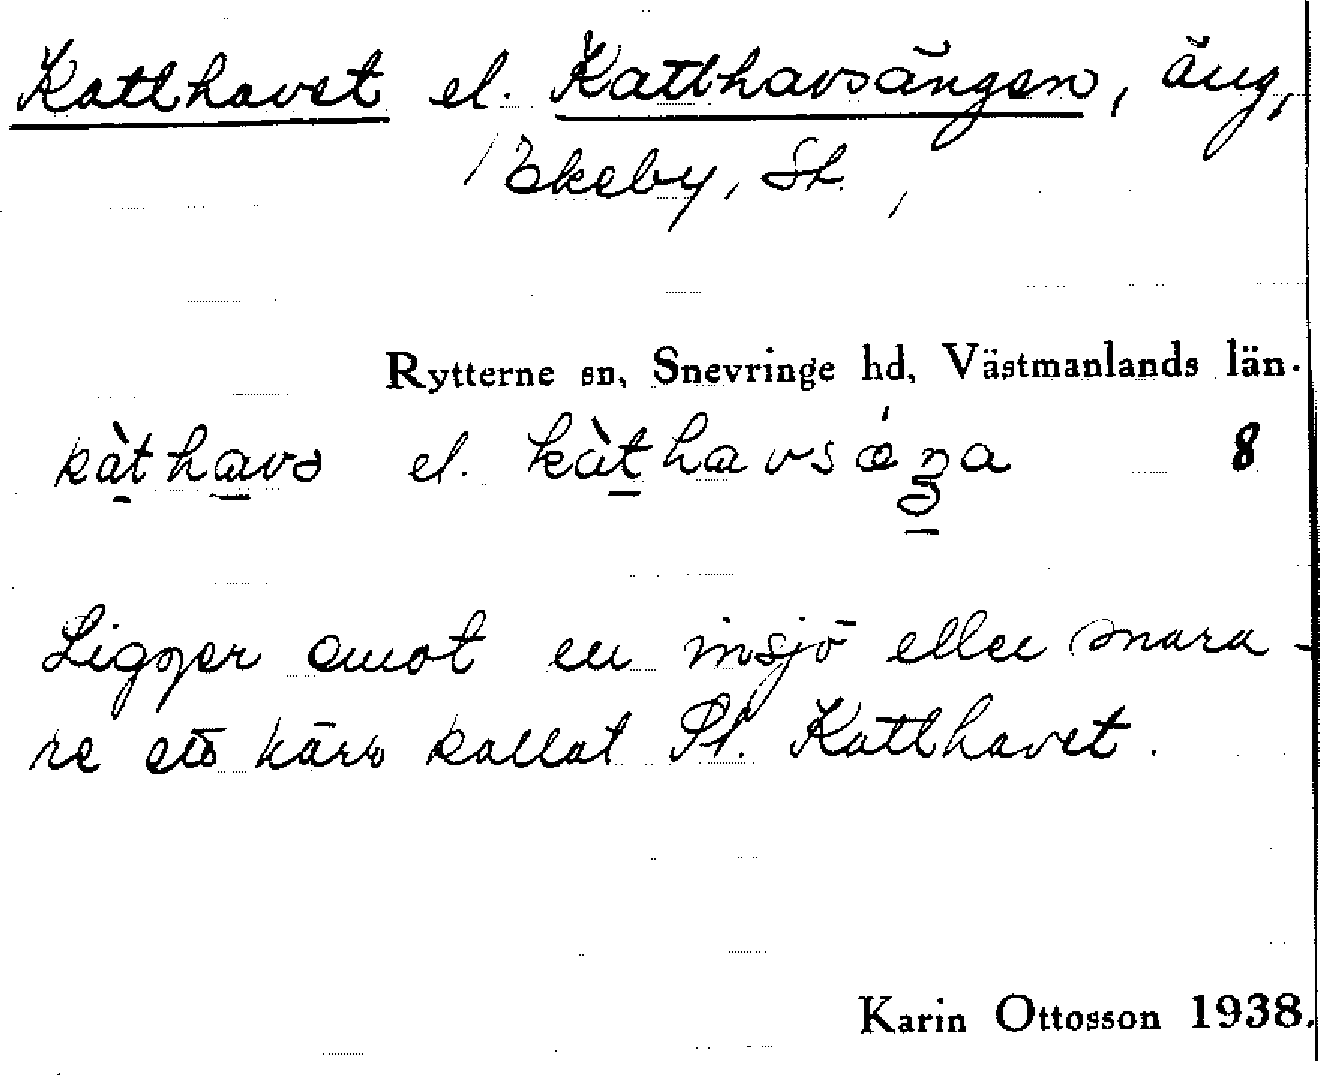 Katthavet el. Katthavsängen, äng,
Ekeby, St.
Rytterne sn, Snevringe hd, Västmanlands län.
kàthavə el. kàthavsǽŋa 8
Ligger emot en insjö eller snara-
re ett kärr kallat St. Katthavet.
Karin Ottosson 1938.